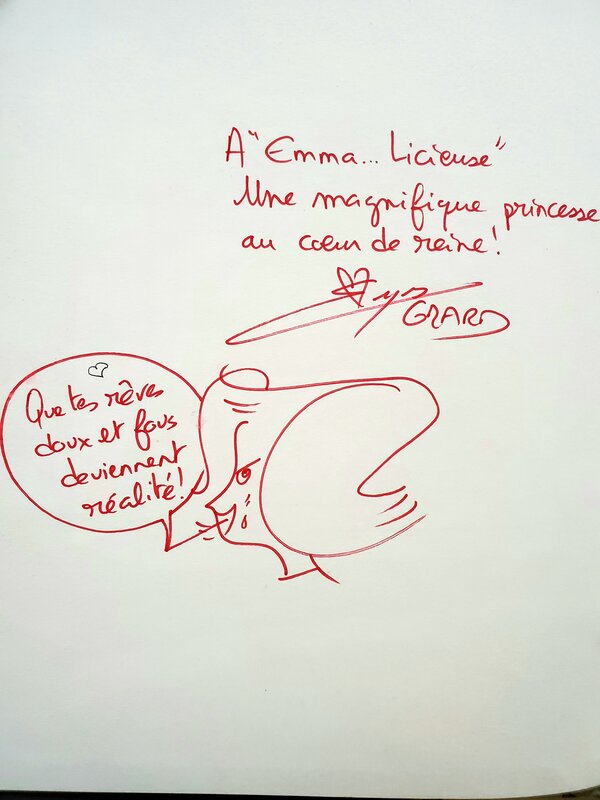 A "Emma... Licieuse"
Une magnifique princesse
au cœur de reine !
GRARD
Que tes rêves
doux et fous
deviennent
réalité !